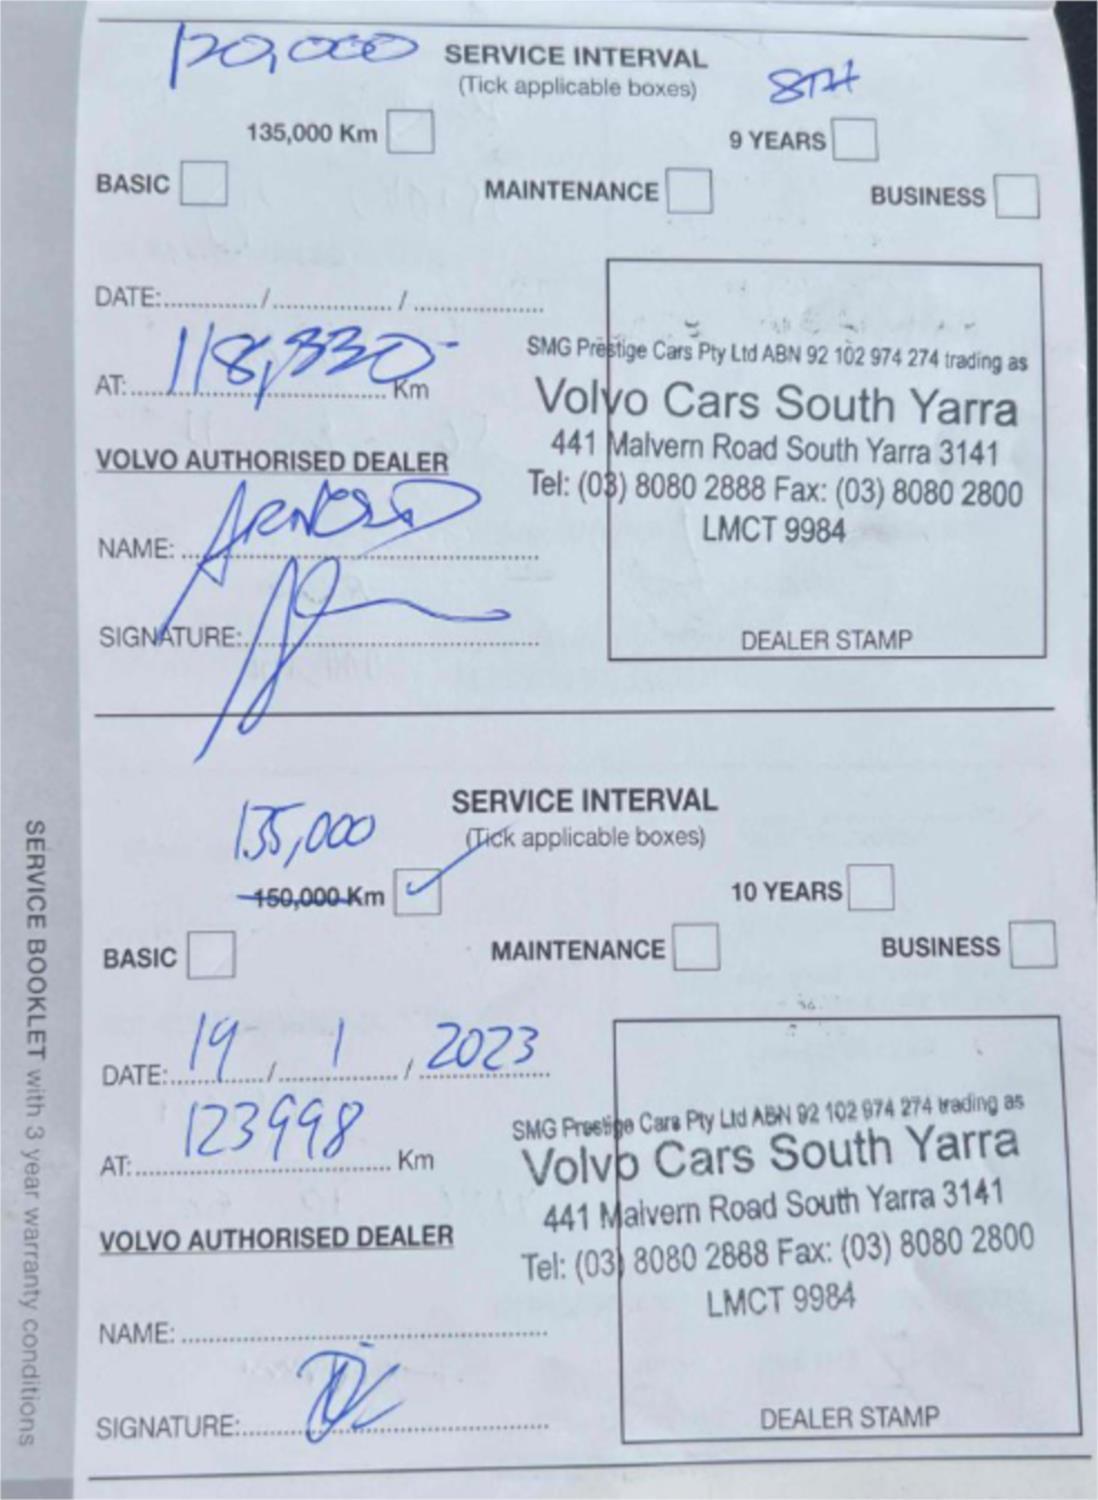 120,000
SERVICE INTERVAL
(Tick applicable boxes)
8TH
135,000 Km
9 YEARS
BASIC
MAINTENANCE
BUSINESS
DATE:............../................./....................
AT:
118,330
Km
SMG Prestige Cars Pty Ltd ABN 92 102 974 274 trading as
Volvo Cars South Yarra
441 Malvern Road South Yarra 3141
Tel: (03) 8080 2888 Fax: (03) 8080 2800
LMCT 9984
DEALER STAMP
VOLVO AUTHORISED DEALER
NAME:
SIGNATURE:
SERVICE INTERVAL
(Tick applicable boxes)
135,000
150,000 Km
10 YEARS
BASIC
MAINTENANCE
BUSINESS
DATE: 19 / 1 / 2023
AT: 123998 Km
SMG Prestige Cars Pty Ltd ABN 92 102 974 274 trading as
Volvo Cars South Yarra
441 Malvern Road South Yarra 3141
Tel: (03) 8080 2888 Fax: (03) 8080 2800
LMCT 9984
DEALER STAMP
VOLVO AUTHORISED DEALER
NAME:
SIGNATURE:
SERVICE BOOKLET with 3 year warranty conditions